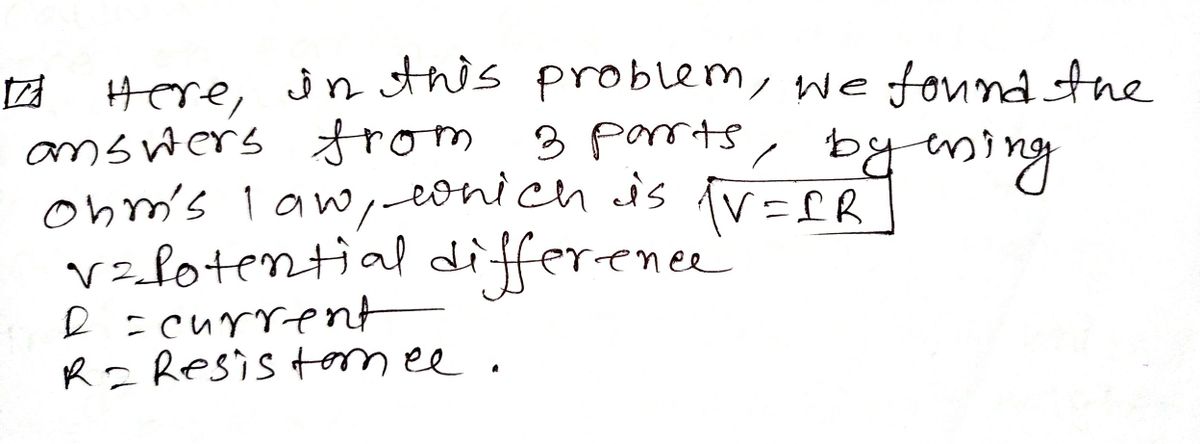 Here, in this problem, we found the
answers from 3 parts, by using
Ohm's law, which is V=IR
V=Potential difference
I = current
R = Resistance.